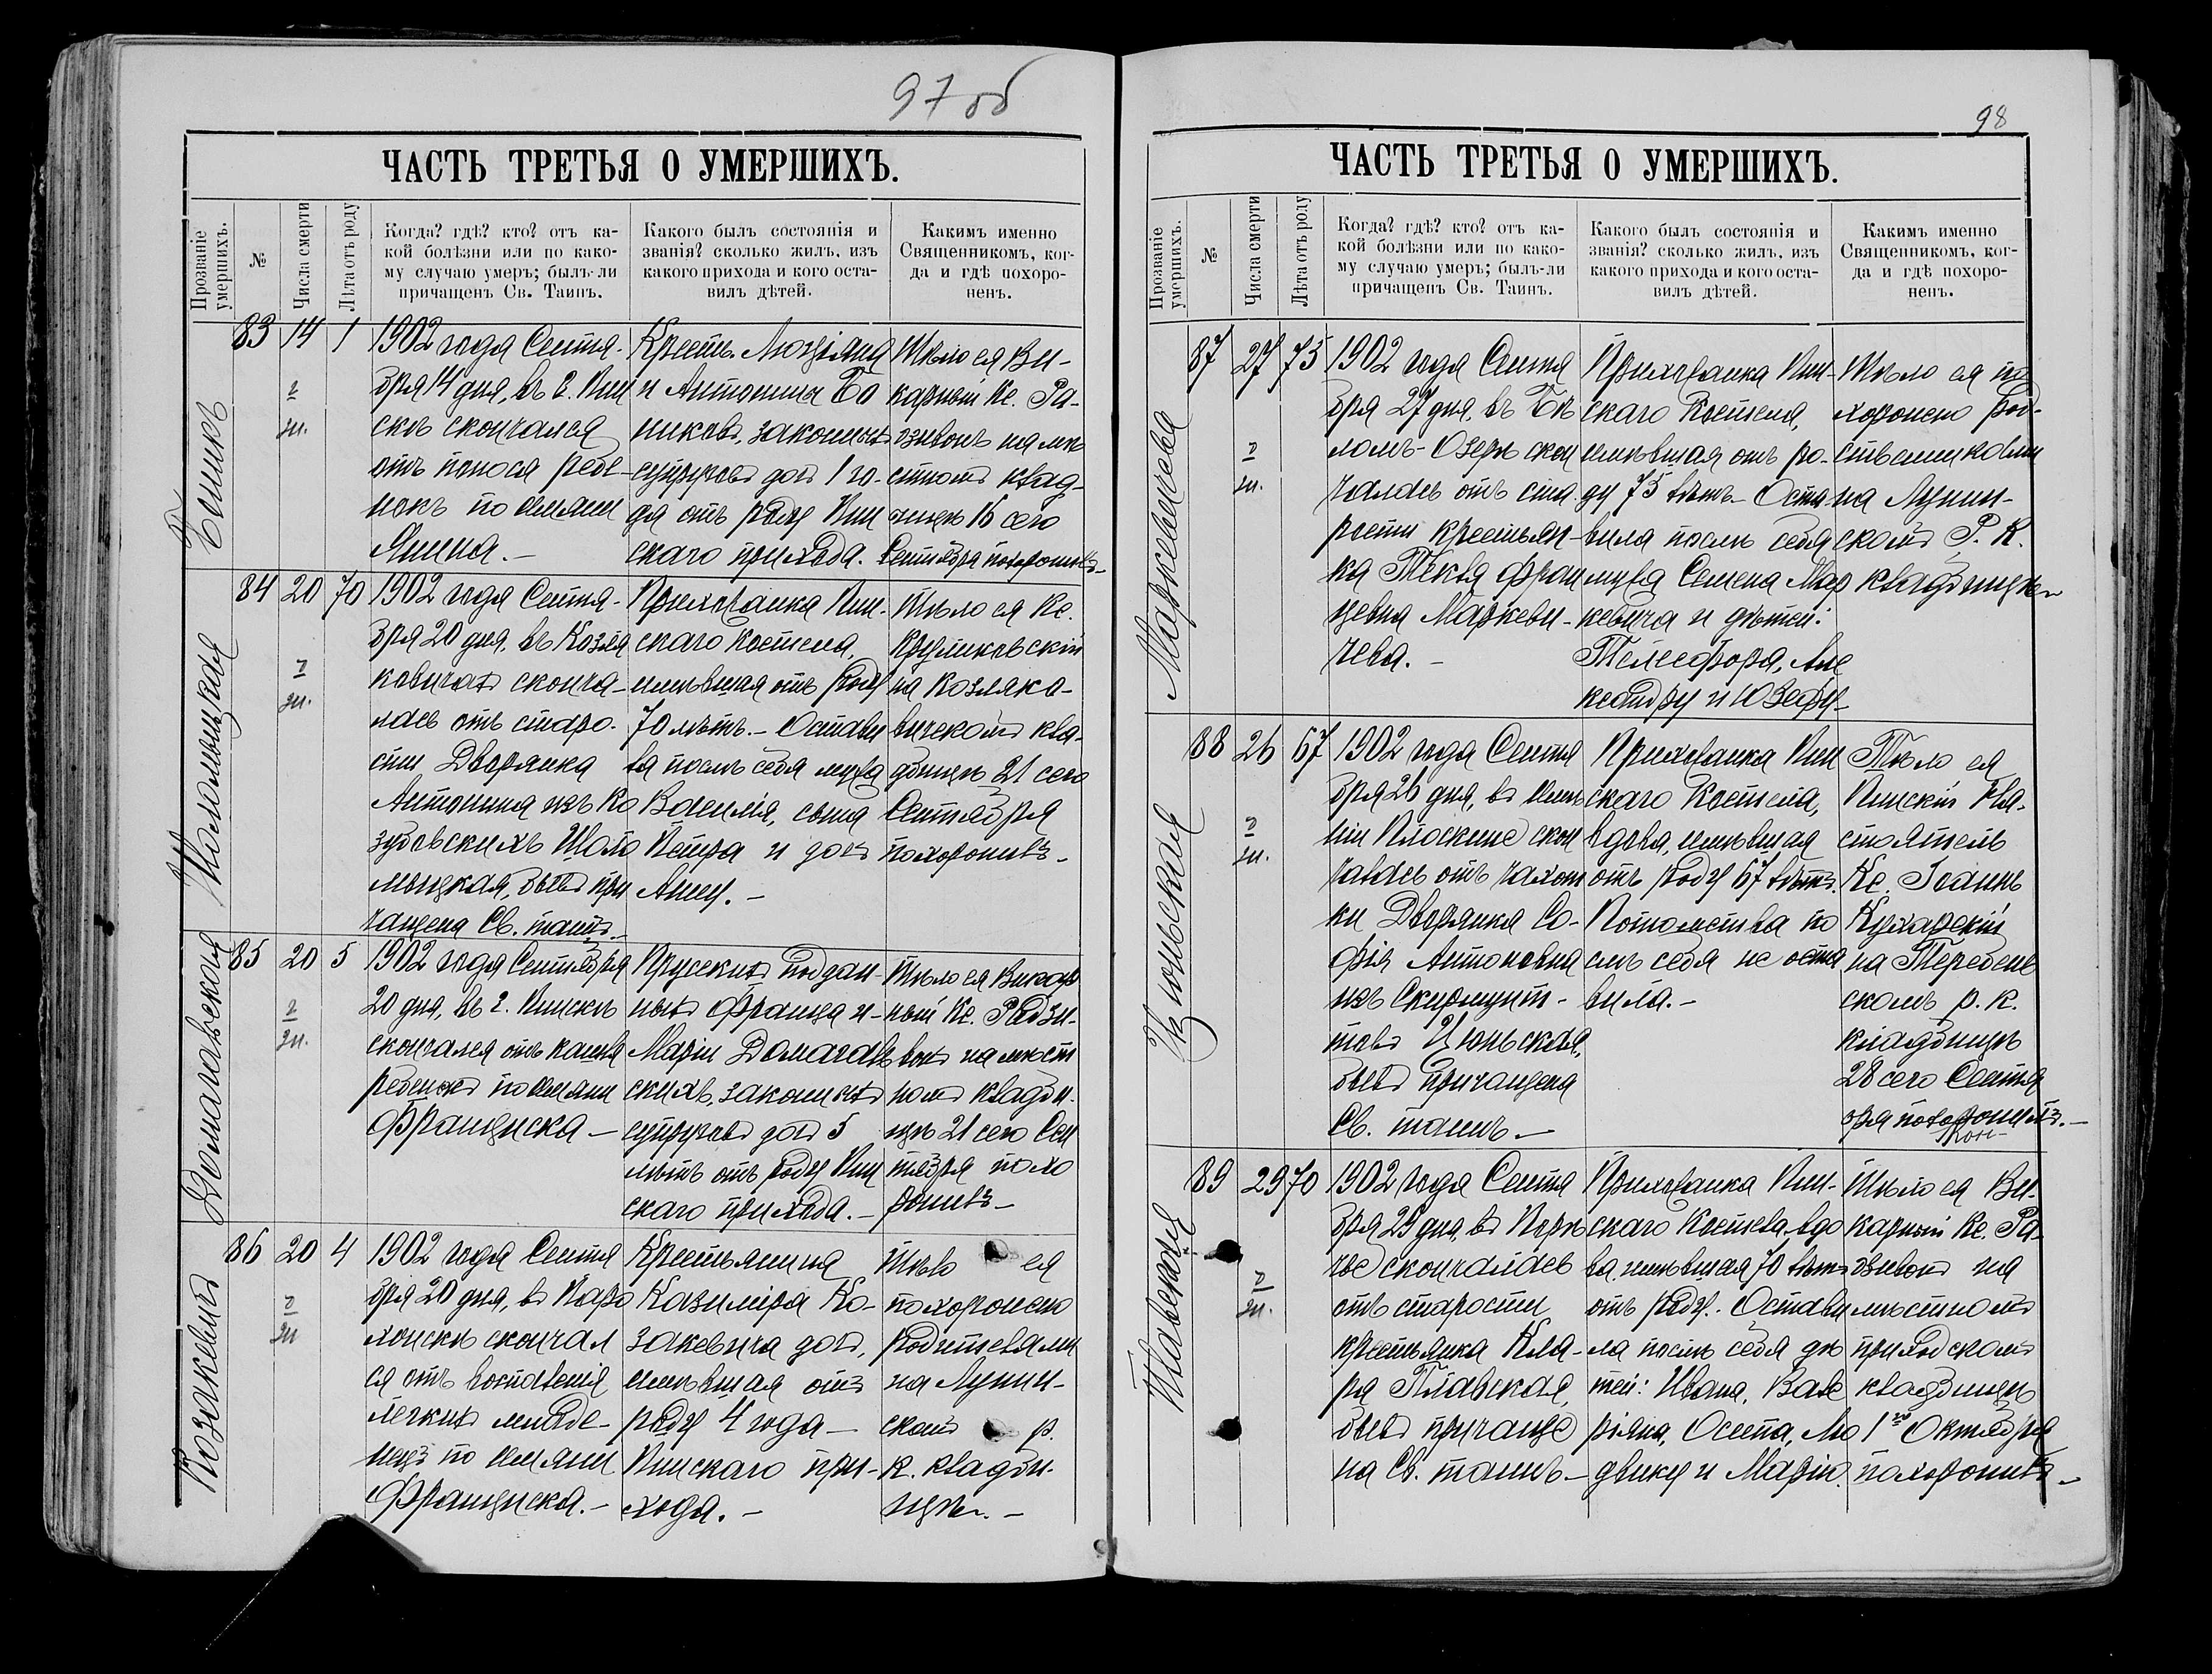 97 об
ЧАСТЬ ТРЕТЬЯ О УМЕРШИХЪ.
Прозваніе умершихъ.
№
Числа смерти
Лѣта отъ роду
Когда? гдѣ? кто? отъ ка-
кой болѣзни или по како-
му случаю умеръ; былъ-ли
причащенъ Св. Таинъ.
Какого былъ состоянія и
званія? сколько жилъ, изъ
какого прихода и кого оста-
вилъ дѣтей.
Какимъ именно
Священникомъ, ког-
да и гдѣ похоро-
ненъ.
83 14 1
1902 года Сентя-
бря 14 дня, въ г. Пин
скѣ скончался
отъ поноса ребе-
нокъ по имени
Янина.-
Крест. Люціяна
и Антонины Бо
никовъ, законныхъ
супруговъ дочь 1 го-
да отъ роду Пин
скаго прихода.
Тѣло ея Ви-
карный Кс. Ра-
дзивонъ на мѣ
стномъ клад-
бищѣ 16 сего
Сентября похоронилъ-
Шоломыцкая
84 20 70
1902 года Сентя-
бря 20 дня, въ Козля
ковичахъ сконча-
лась отъ старо-
сти Дворянка
Антонина изъ Ко
зубовскихъ Шоло
мыцкая, бывъ при
чащена Св. таинъ.-
Прихожанка Пин-
скаго костела,
имѣвшая отъ роду
70 лѣтъ.- Остави
ла послѣ себя мужа
Василія, сына
Петра и дочь
Анну.-
Тѣло ея Кс.
Круликовскій
на Козляко-
вичскомъ кла-
дбищѣ 21 сего
Сентября
похоронилъ-
85 20 5
1902 года Сентября
20 дня, въ г. Пинскѣ
скончался отъ кашля
ребенокъ по имени
Франциска-
Прусскихъ поддан-
ныхъ Франца и
Маріи Домагаль
скихъ, законныхъ
супруговъ дочь 5
лѣтъ отъ роду Пин
скаго прихода.-
Тѣло ея Викар
ный Кс. Радзи-
вонъ на мѣст
номъ кладби-
щѣ 21 сего Сен
тября похо
ронилъ-
Козакевичъ
86 20 4
1902 года Сентя
бря 20 дня, въ Паро
хонскѣ скончал
ся отъ воспаленія
легкихъ младе-
нецъ по имени
Франциска.-
Крестьянина
Казиміра Ко-
закевича дочь,
имѣвшая отъ
роду 4 года-
Пинскаго при-
хода.-
Тѣло ея
похоронено
родителями
на Лунин-
скомъ р.
к. кладби-
щѣ.-
98
ЧАСТЬ ТРЕТЬЯ О УМЕРШИХЪ.
Прозваніе умершихъ.
№
Числа смерти
Лѣта отъ роду
Когда? гдѣ? кто? отъ ка-
кой болѣзни или по како-
му случаю умеръ; былъ-ли
причащенъ Св. Таинъ.
Какого былъ состоянія и
званія? сколько жилъ, изъ
какого прихода и кого оста-
вилъ дѣтей.
Какимъ именно
Священникомъ, ког-
да и гдѣ похоро-
ненъ.
Маркевичева
87 27 75
1902 года Сентя
бря 27 дня, въ Бѣ
ломъ-Озерѣ скон
чалась отъ ста
рости крестьян-
ка Текля Фран
цевна Маркеви-
чева.-
Прихожанка Пин-
скаго Костела,
имѣвшая отъ ро-
ду 75 лѣтъ- Оста-
вила послѣ себя
мужа Семена Мар
кевича и дѣтей:
Телесфора, Але
ксандру и Юзефу-
Тѣло ея по
хоронено род-
ственниками
на Лунин-
скомъ Р. К.
кладбищѣ-
88 26 67
1902 года Сентя
бря 26 дня, въ имѣ
ніи Плоскине скон
чалась отъ чахот
ки Дворянка Со-
фія Антоновна
изъ Скирмунт-
товъ
бывъ причащена
Св. таинъ-
Прихожанка Пин
скаго Костела,
вдова, имѣвшая
отъ роду 67 лѣтъ.
Потомства по
слѣ себя не оста
вила.-
Тѣло ея
Пинскій На-
стоятель
Кс. Іоаннъ
Кухарскій
на Теребень
скомъ р. к.
кладбищѣ
28 сего Сентя
бря похоронилъ.-
Плавская
89 29 70
1902 года Сентя
бря 29 дня, въ Порѣ
чье скончалась
отъ старости
крестьянка Кла-
ра Плавская,
бывъ причаще
на Св. таинъ-
Прихожанка Пин-
скаго Костела-вдо
ва, имѣвшая 70 лѣтъ
отъ роду. Остави
ла послѣ себя дѣ
тей: Ивана, Вале
ріяна, Осипа, Лю
двику и Марію.
Тѣло ея Ви-
карный Кс. Ра-
дзивонъ на
мѣстномъ
приходскомъ
кладбищѣ
1го Октября
похоронилъ-